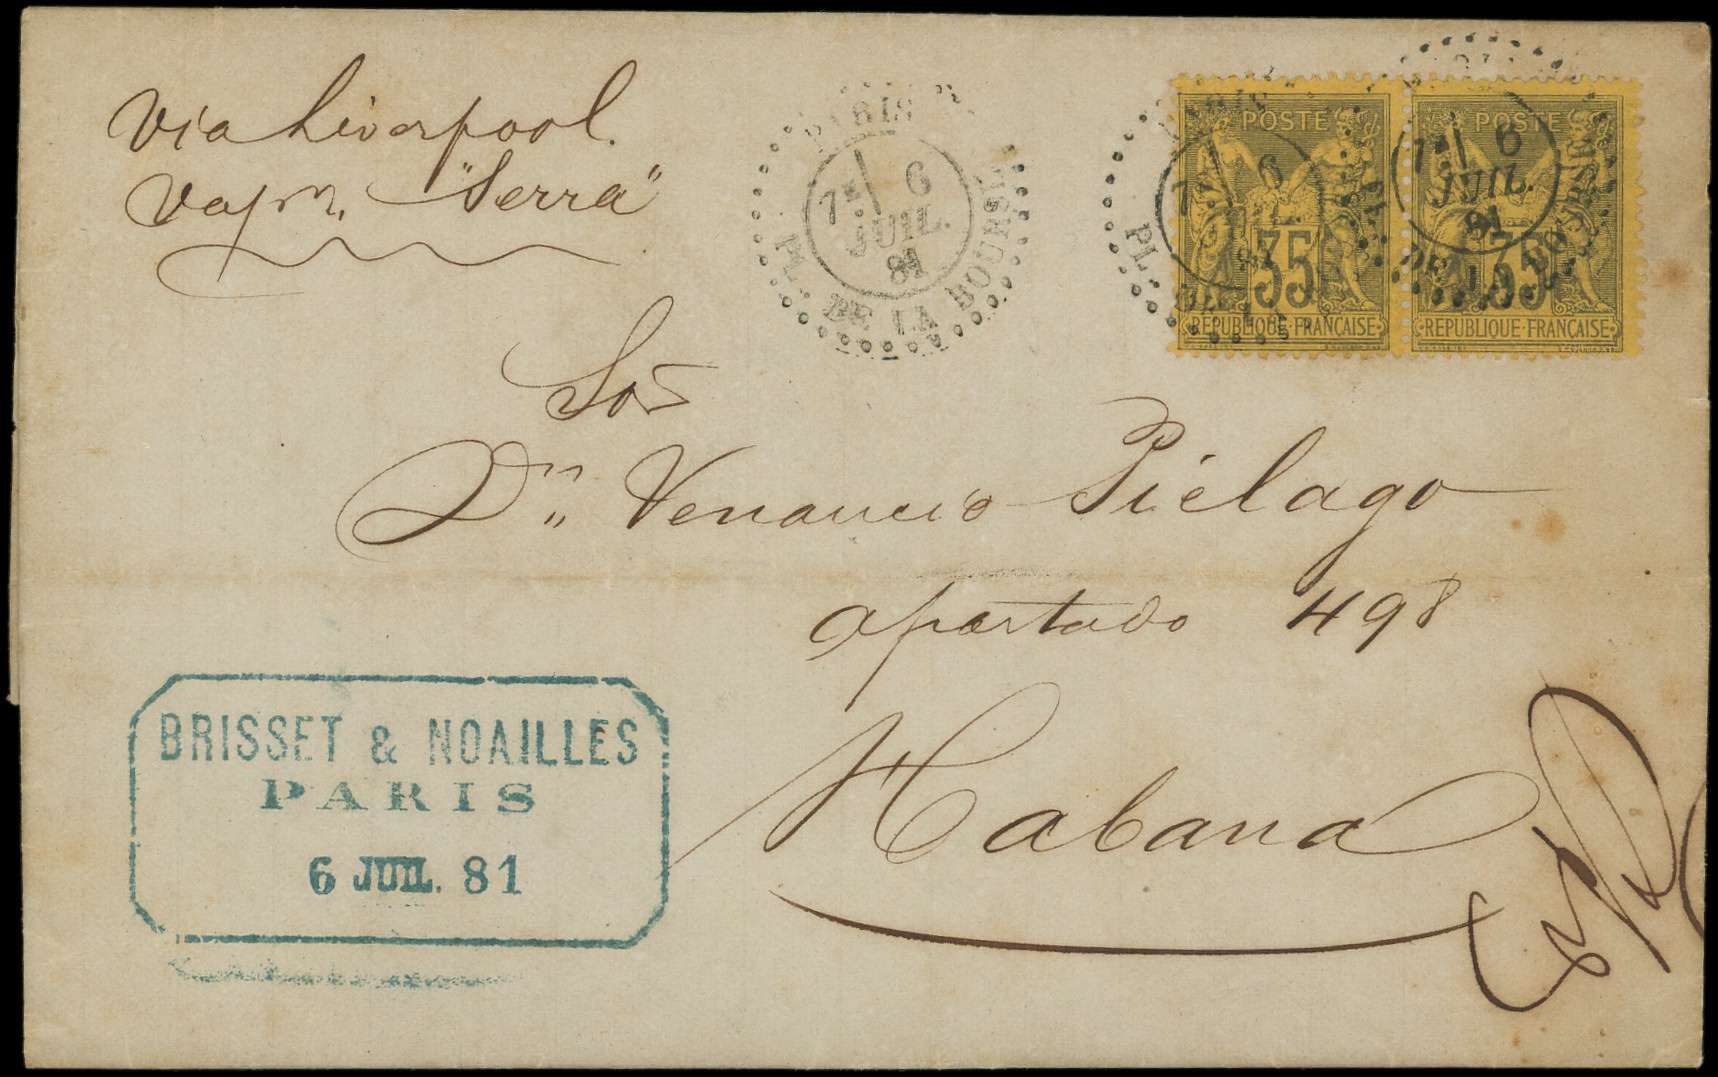 via Liverpool.
vapr. "Serra"
PARIS
7E 6
JUIL.
81
PL. DE LA BOURSE
POSTE
35
REPUBLIQUE FRANÇAISE
POSTE
35
REPUBLIQUE FRANÇAISE
7E 6
JUIL.
81
PL. DE LA
7E 6
JUIL.
81
DE LA BOURSE
Sor
Dn Venancio Piélago
apartado 498
Habana
BRISSET & NOAILLES
PARIS
6 JUIL. 81